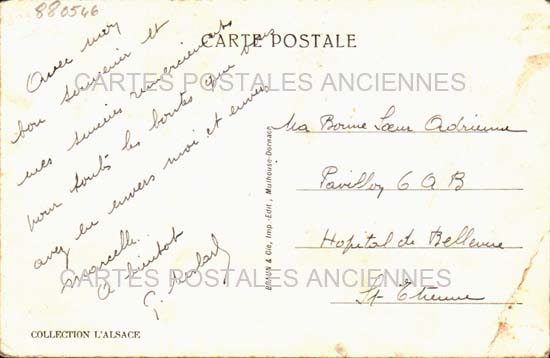 880546
CARTE POSTALE
CARTES POSTALES ANCIENNES
Avec mon
bon souvenir et
mes sincères remerciements
pour toute les bontés que vous
avez eu envers moi et envers
Marcelle.
A bientôt
Ma Bonne Sœur Adrienne
Pavillon 6 A B
Hopital de Bellevue
St-Etienne
BRAUN & Cie, Imp.-Edit., Mulhouse-Dornach
CARTES POSTALES ANCIENNES
COLLECTION L'ALSACE